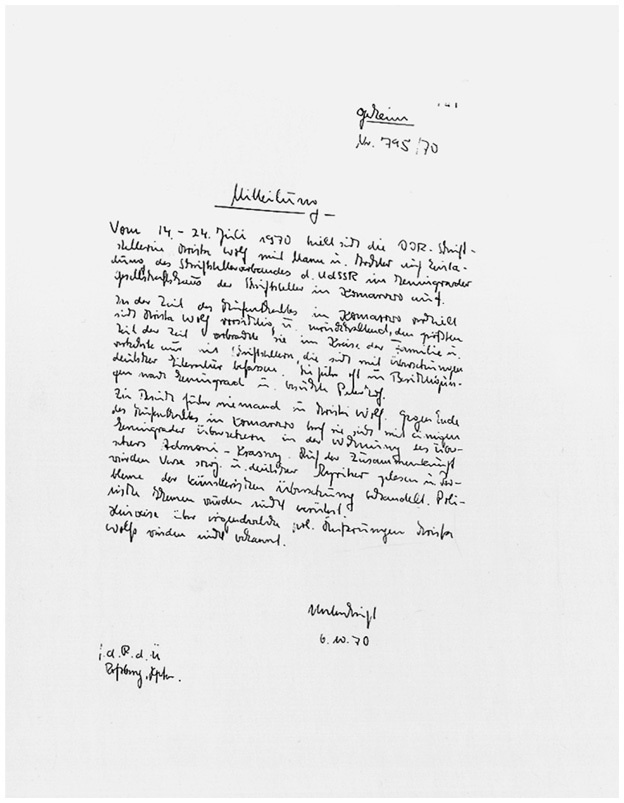 geheim
Nr. 795/70
Mitteilung
Vom 14. - 24. Juli 1970 hielt sich die DDR-Schrift-
stellerin Christa Wolf mit Mann u. Tochter auf Einla-
dung des Schriftstellerverbandes d. UdSSR im Leningrader
Gesellschaftshaus der Schriftsteller in Komarowo auf.
In der Zeit des Aufenthaltes in Komarowo verhielt
sich Christa Wolf vorsichtig u. zurückhaltend, den größten
Teil der Zeit verbrachte sie im Kreise der Familie u.
verkehrte nur mit Schriftstellern, die sich mit Übersetzungen
deutscher Literatur befassen. Sie fuhr oft zu Besichtigun-
gen nach Leningrad u. besuchte Peterhof.
Zu Besuch fuhr niemand zu Christa Wolf. Gegen Ende
des Aufenthaltes in Komarowo traf sie sich mit einigen
Leningrader Übersetzern in der Wohnung des Über-
setzers Admoni - Krasny. Auf der Zusammenkunft
wurden Verse sowj. u. deutscher Lyriker gelesen u. Pro-
bleme der künstlerischen Übersetzung behandelt. Poli-
tische Themen wurden nicht berührt.
Hinweise über irgendwelche pol. Äußerungen Christa
Wolfs wurden nicht bekannt.
Unterschrift
6.10.70
i.d.R.d.Ü